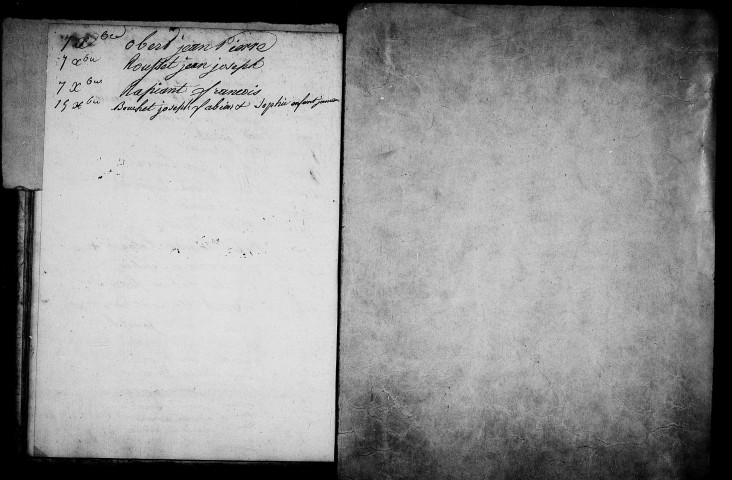 7 xbre obert jean Pierre
7 xbre Rousset jean joseph
7 xbre françois
15 xbre Bouchet joseph fabien & Sophie enfant